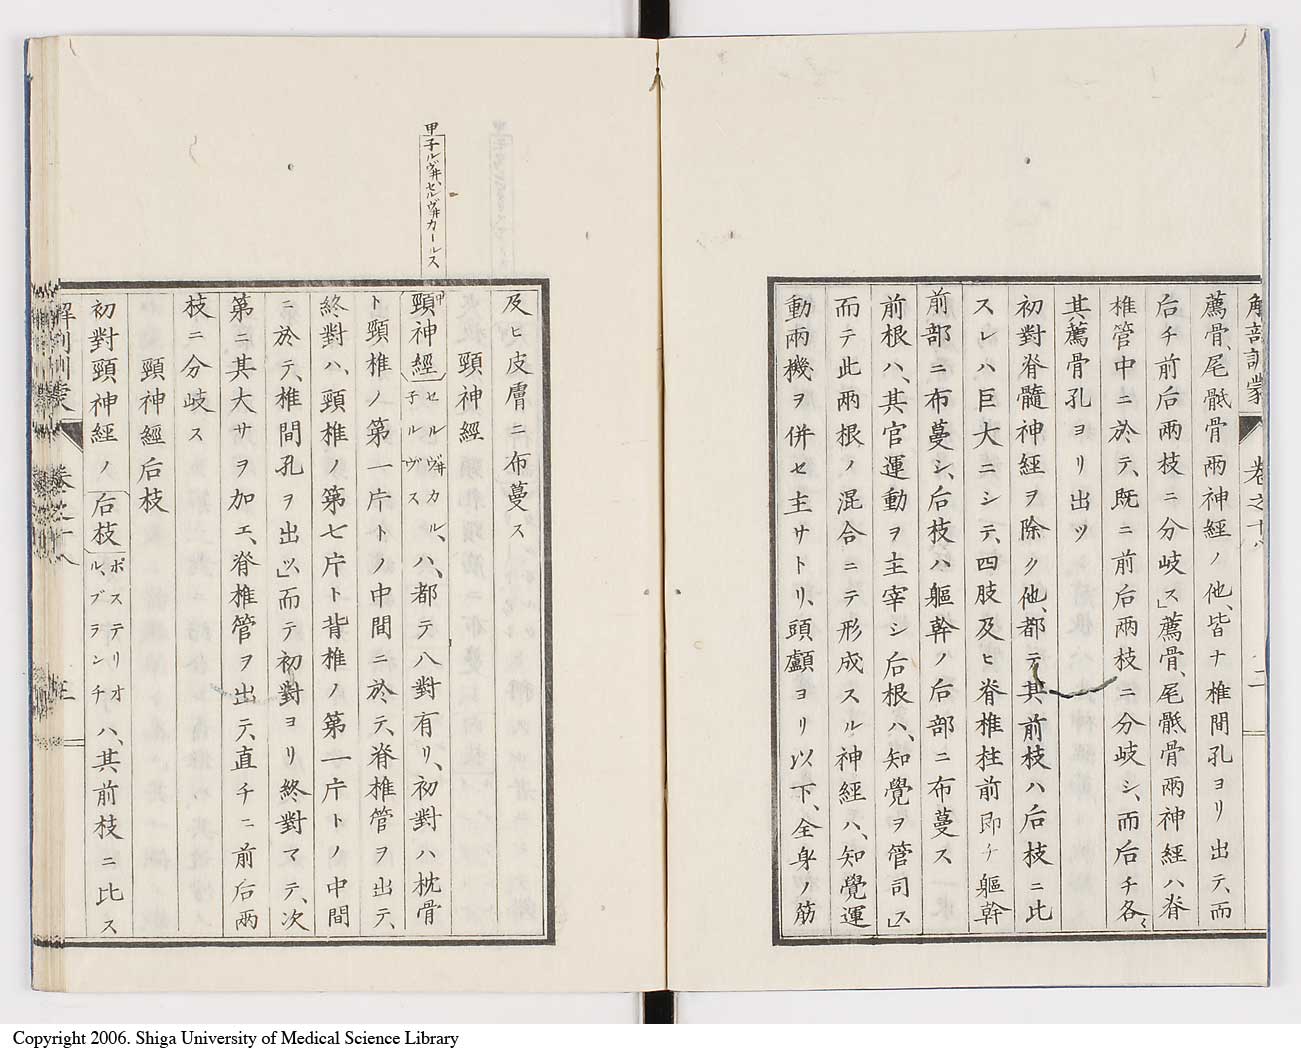 解剖訓蒙 卷之十八 二
薦骨、尾骶骨兩神経ノ他、皆ナ椎間孔ヨリ出テ、而
后チ前后兩枝ニ分岐ス」薦骨、尾骶骨兩神經ハ脊
椎管中ニ於テ、既ニ前后兩枝ニ分岐シ、而后チ各〻
其薦骨孔ヨリ出ツ
初對脊髓神経ヲ除ク他、都テ其前枝ハ后枝ニ比
スレハ巨大ニシテ、四肢及ヒ脊椎柱前即チ軀幹
前部ニ布蔓シ、后枝ハ軀幹ノ后部ニ布蔓ス
前根ハ、其官運動ヲ主宰シ后根ハ、知覺ヲ管司ス」
而テ此兩根ノ混合ニテ形成スル神経ハ、知覺運
動兩機ヲ併セ主サトリ、頭顱ヨリ以下、全身ノ筋
及ヒ皮膚ニ布蔓ス
頸神經
甲子ルヴ井、セルヴ井カールス
甲頸神經 セルヴ井カル、子ルヴス ハ、都テ八對有リ、初對ハ枕骨
ト頸椎ノ第一片トノ中間ニ於テ、脊椎管ヲ出テ、
終對ハ、頸椎ノ第七片ト背椎ノ第一片トノ中間
ニ於テ、椎間孔ヲ出ツ」而テ初對ヨリ終對マテ、次
第ニ其大サヲ加エ、脊椎管ヲ出テ、直チニ前后兩
枝ニ分岐ス
頸神經后枝
初對頸神経ノ后枝 ポステリオル、ブランチ ハ、其前枝ニ比ス
解剖訓蒙 卷之十八 三
Copyright 2006. Shiga University of Medical Science Library